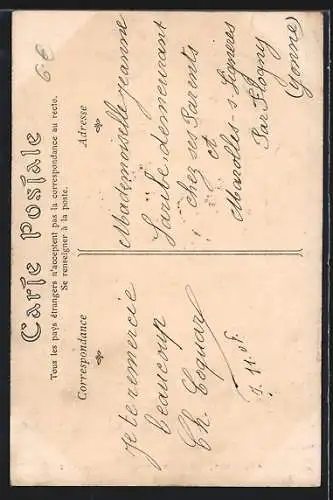 6€
Carte Postale
Tous les pays étrangers n'acceptent pas la correspondance au recto.
Se renseigner à la poste.
Correspondance
Je te remercie
beaucoup
Ch. Coquar
Adresse
Mademoiselle Jeanne
demeurant
chez ses Parents
et
Marolles-s-Lignères
Par Flogny
Yonne